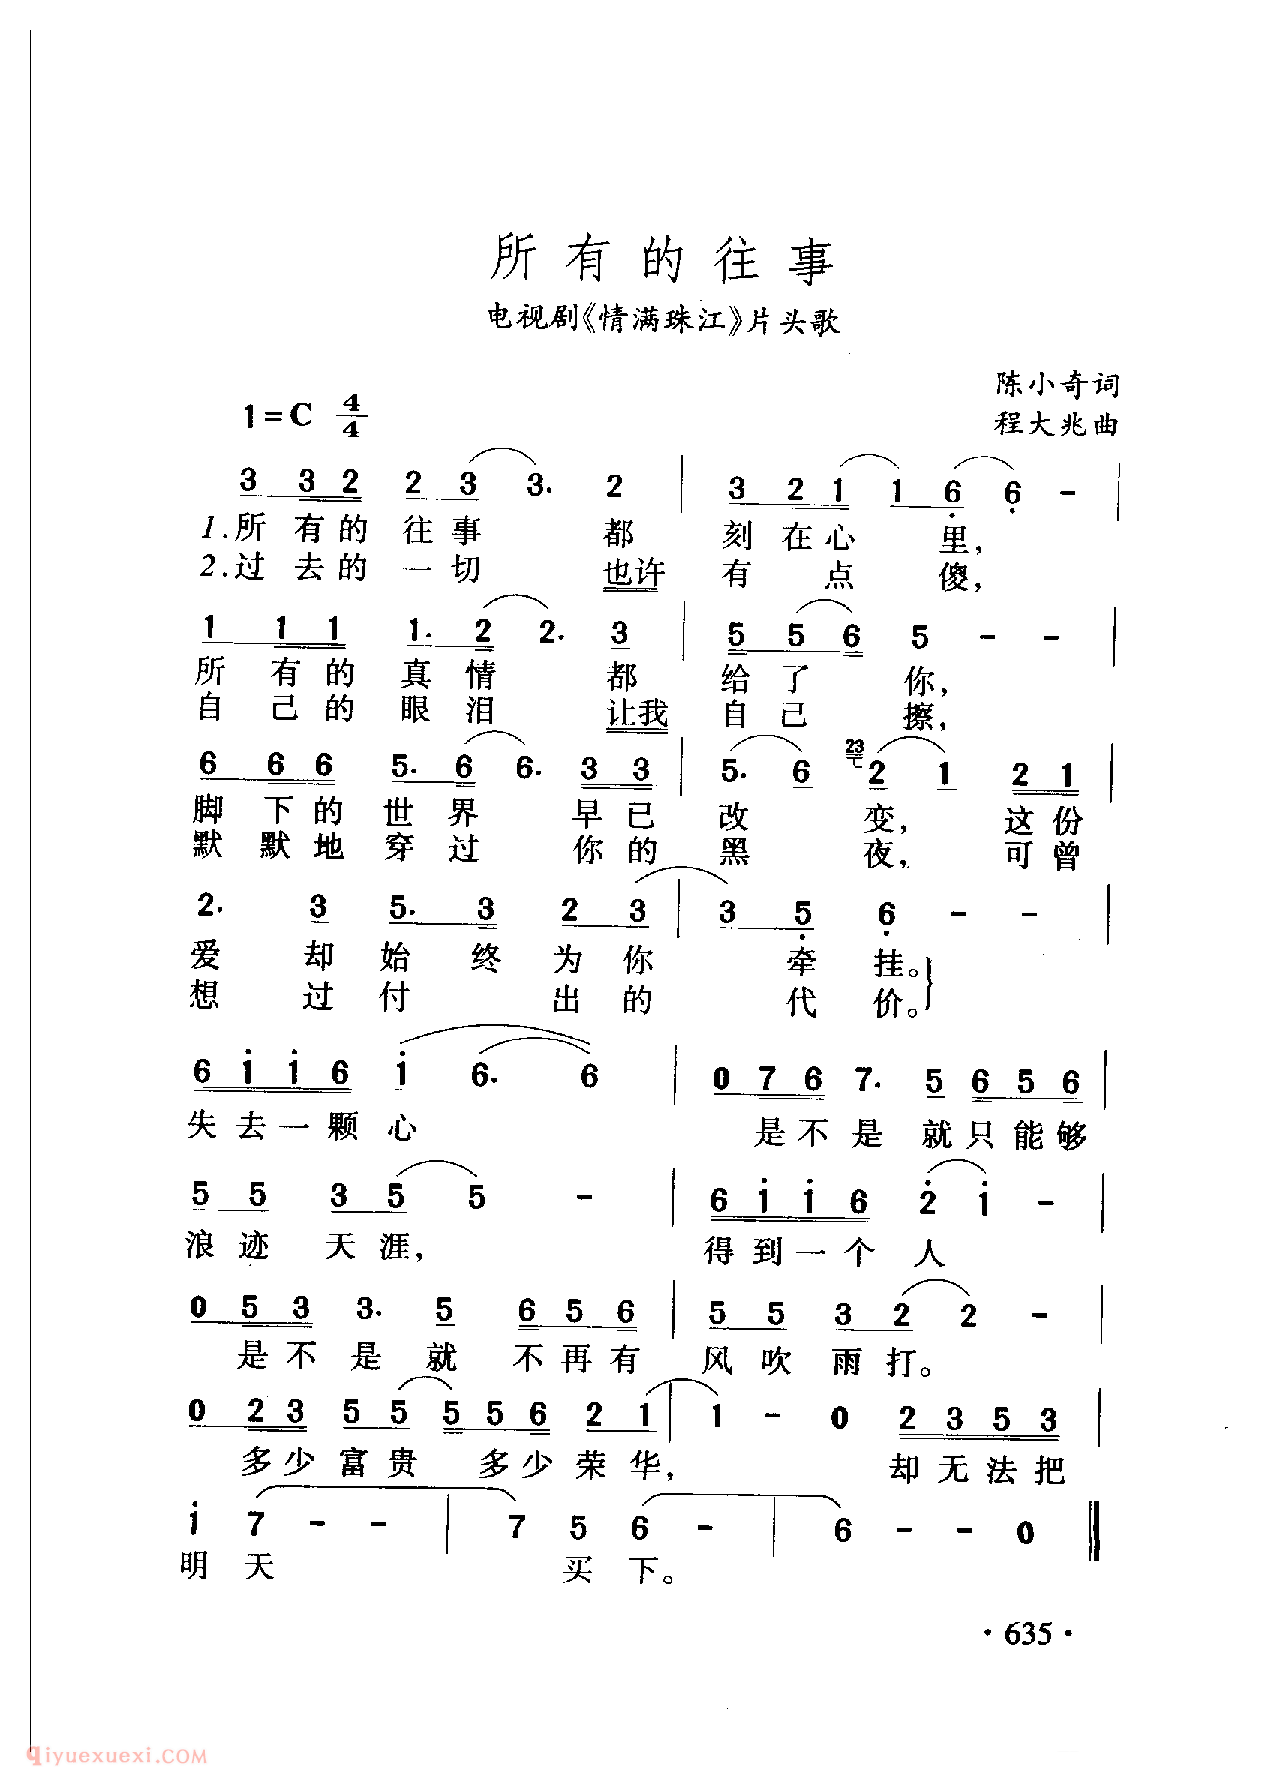 所有的往事
电视剧《情满珠江》片头歌
陈小奇词
1=C 4/4
程大兆曲
3 3 2 2 3 3. 2 | 3 2 1 1 6 6 - |
1.所有的往事 都 刻在心 里,
2.过去的一切 也许 有 点 傻,
1 1 1 1. 2 2. 3 | 5 5 6 5 - - |
所有的真情 都 给了 你,
自己的眼泪 让我 自己 擦,
6 6 6 5. 6 6. 3 3 | 5. 6 23 2 1 2 1 |
脚下的世界 早已 改 变, 这份
默默地穿过 你的 黑 夜, 可曾
2. 3 5. 3 2 3 | 3 5 6 - - |
爱 却始终为你 牵挂。
想 过付 出的 代价。
6 1 1 6 1 6. 6 | 0 7 6 7. 5 6 5 6 |
失去一颗心 是不是 就只能够
5 5 3 5 5 - | 6 1 1 6 2 1 - |
浪迹天涯, 得到一个人
0 5 3 3. 5 6 5 6 | 5 5 3 2 2 - |
是不是就 不再有 风吹雨打。
0 2 3 5 5 5 5 6 2 1 | 1 - 0 2 3 5 3 |
多少富贵 多少荣华, 却无法把
1 7 - - | 7 5 6 - | 6 - - 0 ‖
明天 买下。
·635·
qiyuexuexi.COM